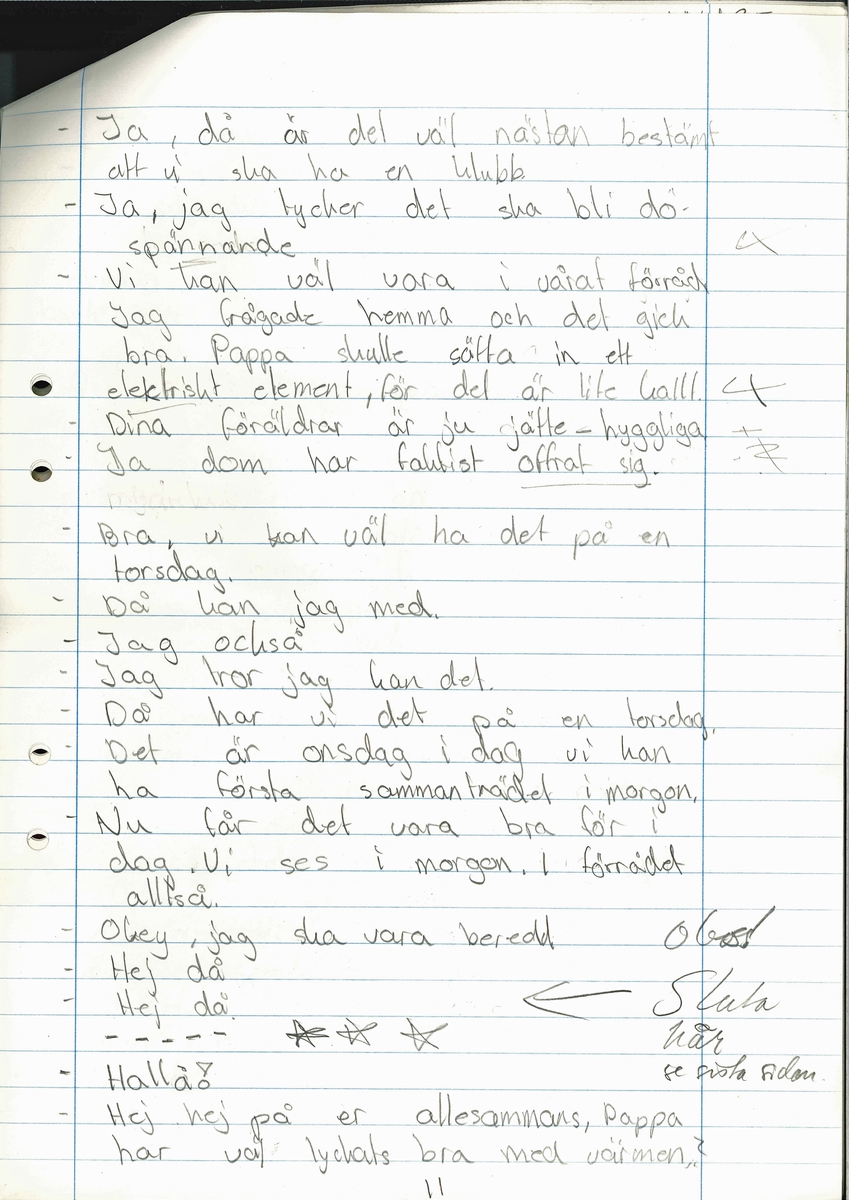 - Ja, då är det väl nästan bestämt
att vi ska ha en klubb.
- Ja, jag tycher det ska bli dö-
spännande
- Vi kan väl vara i vårat förråd
Jag frågade hemma och det gick
bra. Pappa skulle sätta in ett
elektriskt element, för det är lite kallt.
- Dina föräldrar är ju jätte-hyggliga
- Ja dom har faktist offrat sig.
- Bra, vi kan väl ha det på en
torsdag.
- Då kan jag med.
- Jag också
- Jag tror jag kan det.
- Då har vi det på en torsdag.
- Det är onsdag i dag vi kan
ha första sammanträdet i morgon.
- Nu får det vara bra för i
dag. Vi ses i morgon. I förrådet
alltså.
- Okey, jag ska vara beredd
- Hej då
- Hej då. ← Sluta
- - - - - här
- Hallå! se sista sidan.
- Hej hej på er allesammans, Pappa
har väl lyckats bra med värmen.?
11